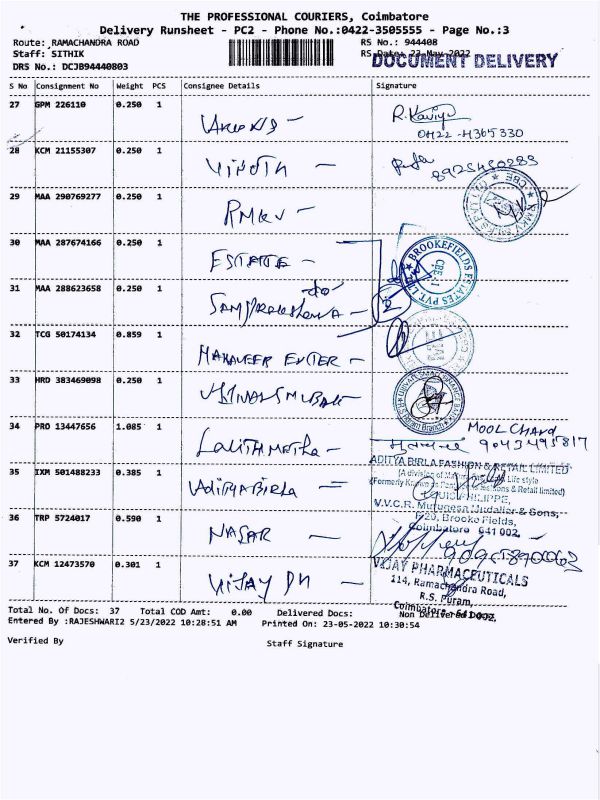 THE PROFESSIONAL COURIERS, Coimbatore
Delivery Runsheet - PC2 - Phone No.:0422-3505555 - Page No.:3
Route: RAMACHANDRA ROAD RS No.: 944408
Staff: SITHIK RS Date: 23-May-2022
DOCUMENT DELIVERY
DRS No.: DCJB94440803
S No Consignment No Weight PCS Consignee Details Signature
27 GPM 226110 0.250 1
R. Kaviya
28 KCM 21155307 0.250 1
VINOTH -
29 MAA 290769277 0.250 1
RMKV -
30 MAA 287674166 0.250 1
ESTATE -
BROOKEFIELDS ESTATES PVT. LTD
CBE-1
31 MAA 288623658 0.250 1
-do-
2
32 TCG 50174134 0.859 1
MAHAVEER ENTER -
33 HRD 383469098 0.250 1
34 PRO 13447656 1.085 1
Lalith Metha -
MOOL CHAND
9043495817
35 IXM 501488233 0.385 1
Aditya Birla =
ADITYA BIRLA FASHION & RETAIL LIMITED
Life style
LOUIS PHILIPPE,
V.V.C.R. Murugesa Mudaliar & Sons,
Brooke Fields,
Coimbatore 641 002.
36 TRP 5724017 0.590 1
NASAR -
37 KCM 12473570 0.301 1
VIJAY PH -
VIJAY PHARMACEUTICALS
114, Ramachandra Road,
R.S. Puram,
Coimbatore - 641 002.
Total No. Of Docs: 37 Total COD Amt: 0.00 Delivered Docs: Non Delivered Docs:
Entered By :RAJESHWARI2 5/23/2022 10:28:51 AM Printed On: 23-05-2022 10:30:54
Verified By Staff Signature